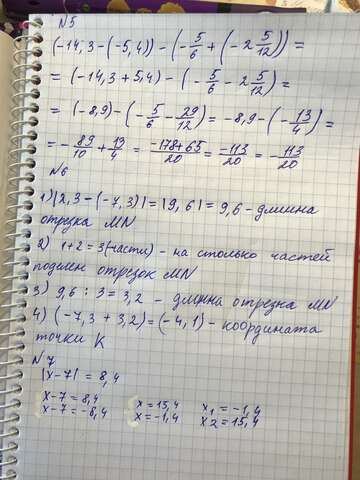 N5
(-14,3-(-5,4))-(-5/6+(-2 5/12))=
=(-14,3+5,4)-(-5/6-2 5/12)=
=(-8,9)-(-5/6-29/12)=-8,9-(-13/4)=
=-89/10+13/4=-178+65/20=-113/20=-113/20
N6
1)|2,3-(-7,3)|=|9,6|=9,6-длинна
отрезка MN
2) 1+2=3(части)-на столько частей
поделен отрезок MN
3) 9,6:3=3,2-длинна отрезка MN
4) (-7,3+3,2)=(-4,1)-координата
точки K
N7
|x-7|=8,4
x-7=8,4 x=15,4 x1=-1,4
x-7=-8,4 x=-1,4 x2=15,4